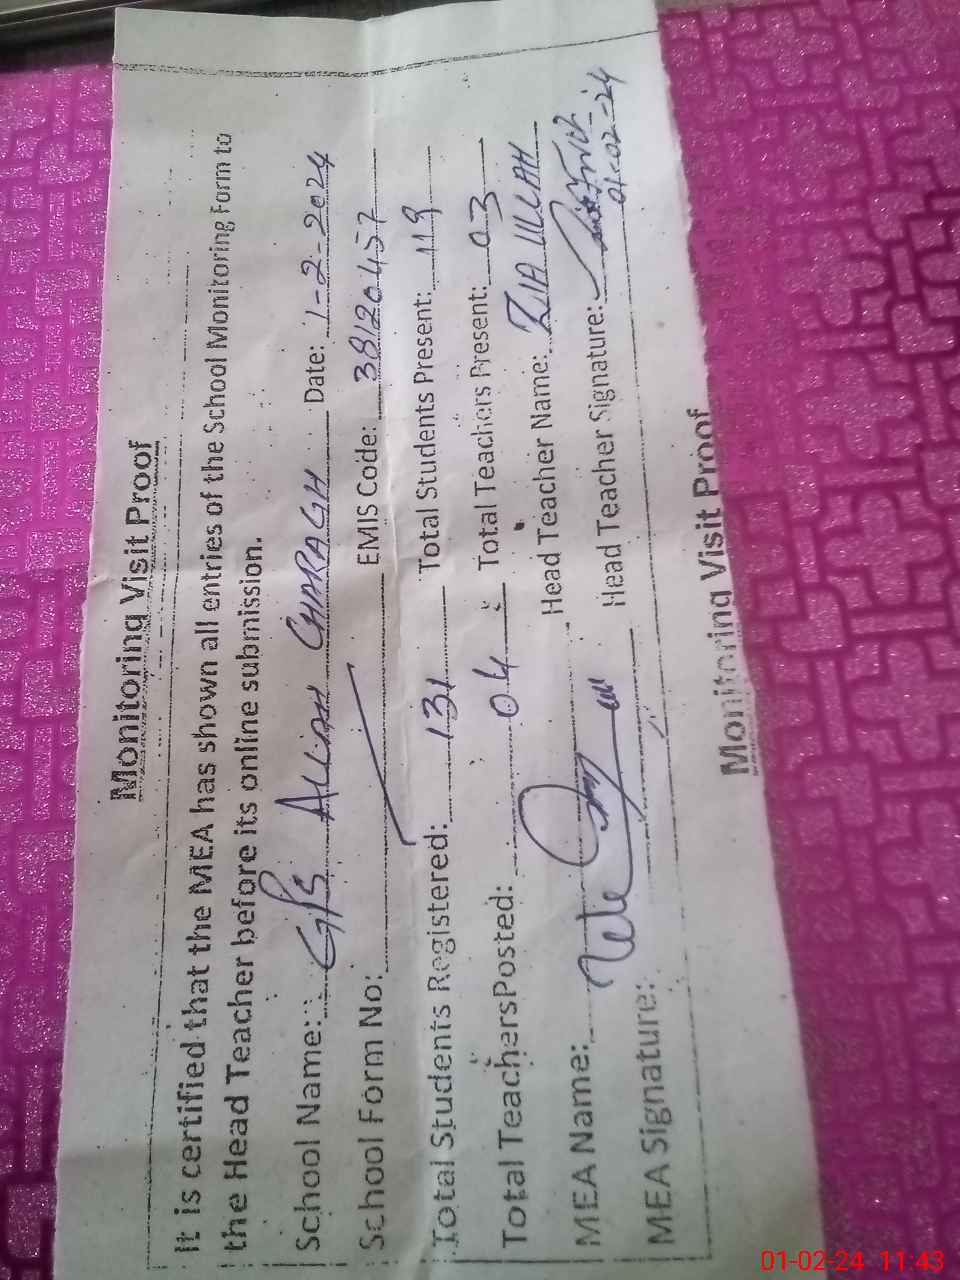 Monitoring Visit Proof
It is certified that the MEA has shown all entries of the School Monitoring Form to
the Head Teacher before its online submission.
School Name: GPS ALLIAH CHARAGH Date: 1-2-2024
School Form No: EMIS Code: 38120457
Total Students Registered: 131 Total Students Present: 119
Total Teachers Posted: 04 Total Teachers Present: 03
MEA Name: Head Teacher Name: ZIA ULLAH
MEA Signature: Head Teacher Signature:
01-02-24
Monitoring Visit Proof
01-02-24 11:43